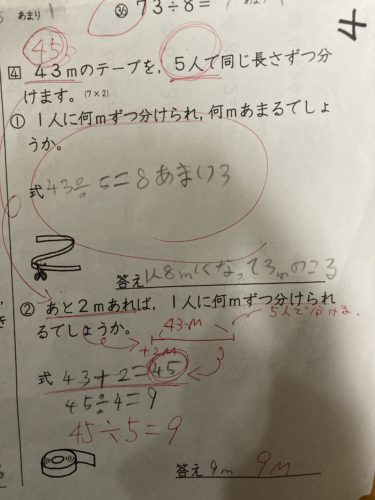 あまり
㊱ 73÷8=
45
4 43mのテープを，5人で同じ長さずつ分
けます。(7×2)
① 1人に何mずつ分けられ，何mあまるでしょ
うか。
式 43÷5=8あまり3
答え 1人8mになって3mのこる
② あと2mあれば，1人に何mずつ分けられ
るでしょうか。
43m
5人で分ける。
+2m
式 43+2=45
45÷4=9
45÷5=9
答え 9m 9m